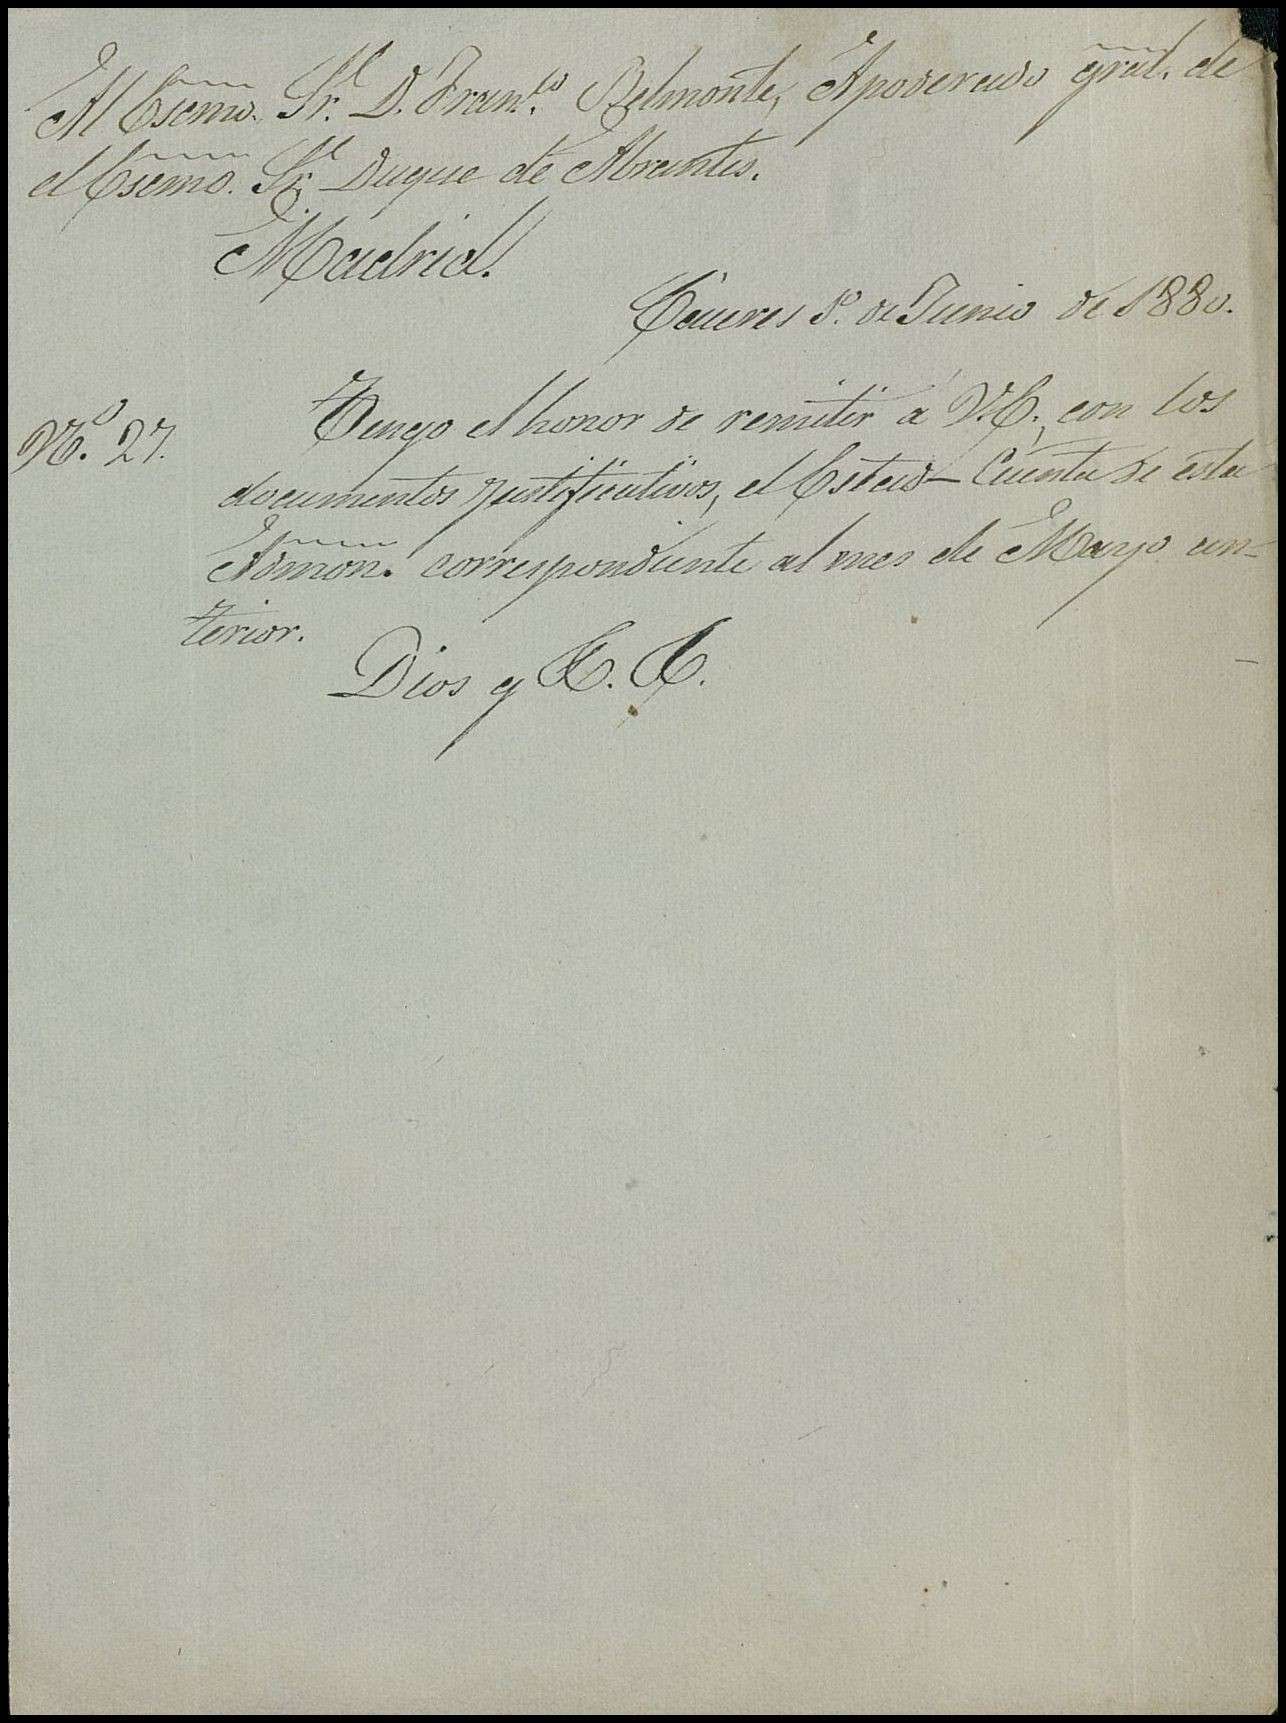 Al Esemo. Sr. D. Franco. Belmonte, Apoderado gral. de
el Esemo. Sr. Duque de Abrantes.
Madrid.
Cáceres 1º. de Junio de 1880.
Nº. 27. Tengo el honor de remitir á V.E., con los
documentos justificativos, el Estado-Cuenta de esta
Admon. correspondiente al mes de Mayo an-
terior.
Dios y E. E.